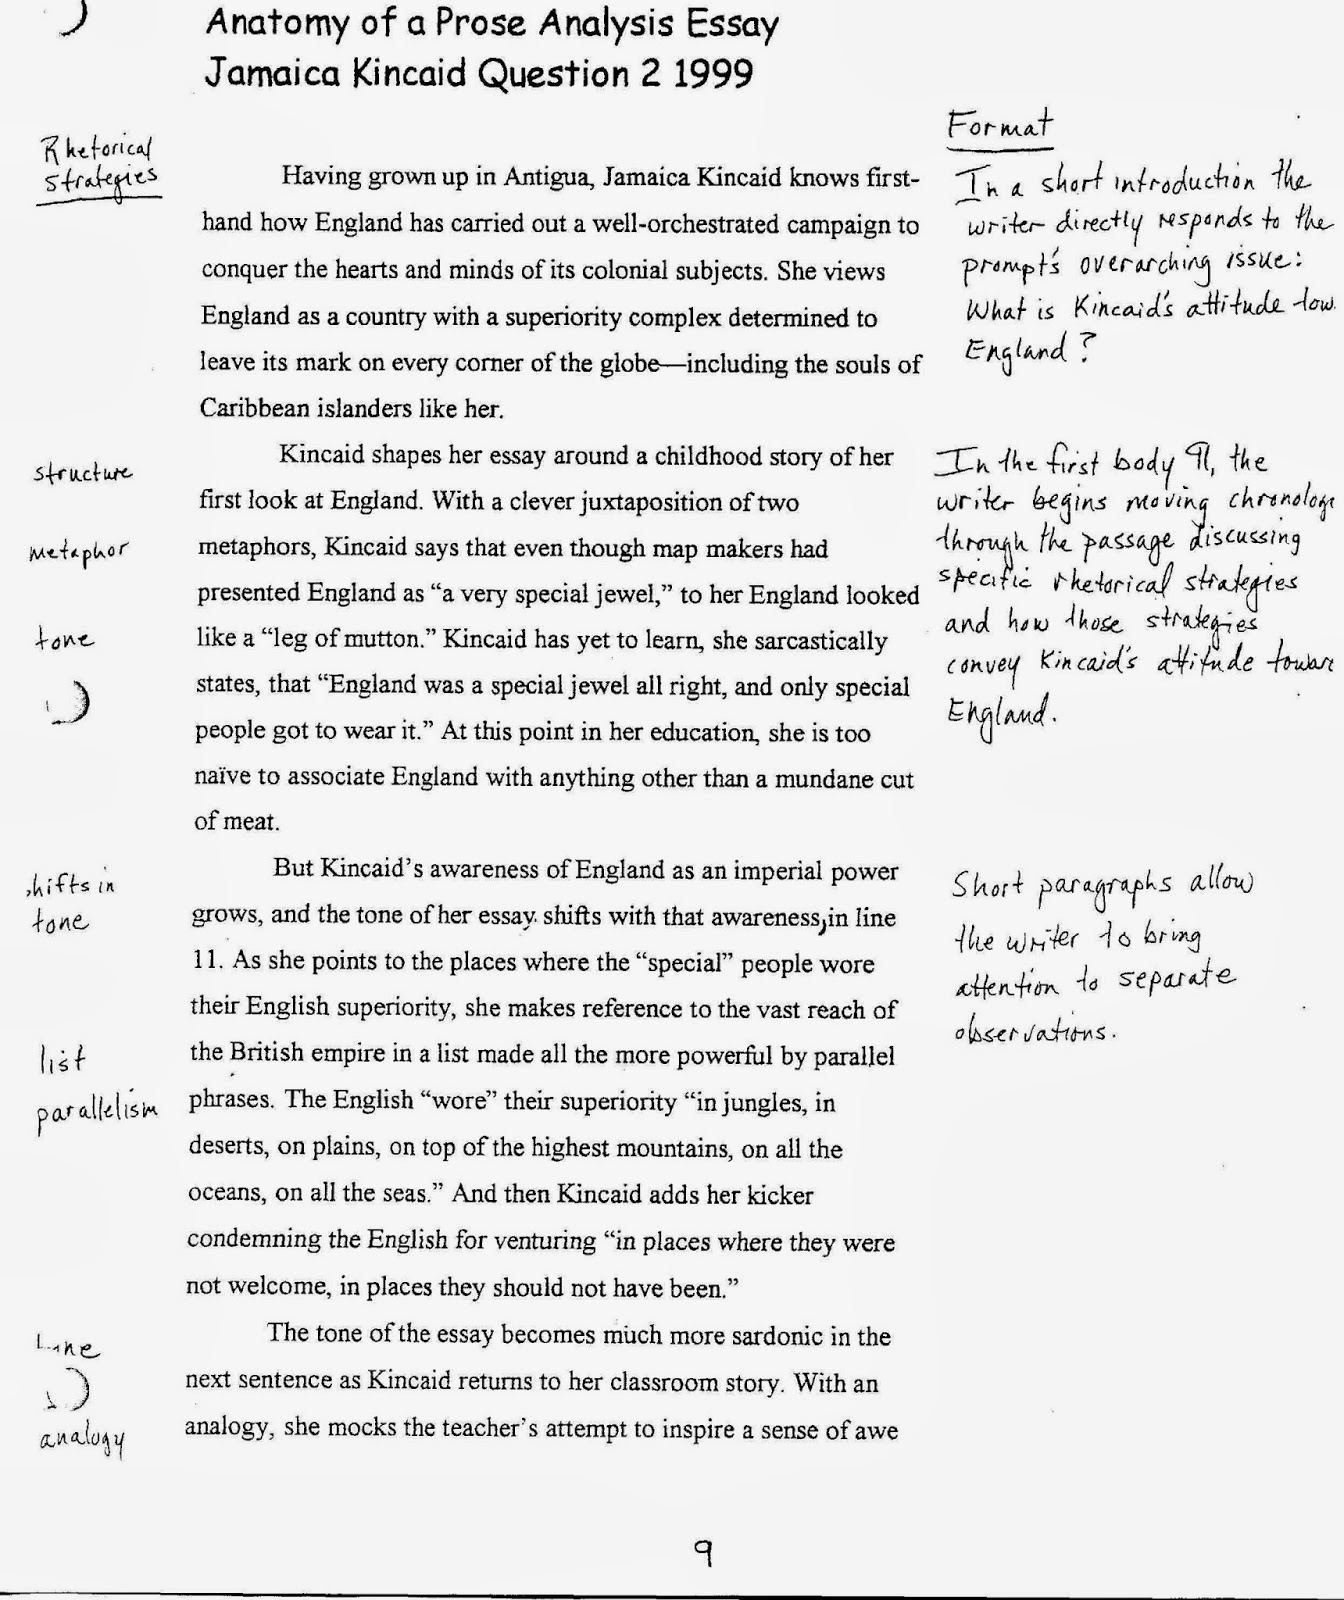 Anatomy of a Prose Analysis Essay
Jamaica Kincaid Question 2 1999
Rhetorical
strategies
Format
In a short introduction the
writer directly responds to the
prompt's overarching issue:
What is Kincaid's attitude tow
England?
Having grown up in Antigua, Jamaica Kincaid knows first-
hand how England has carried out a well-orchestrated campaign to
conquer the hearts and minds of its colonial subjects. She views
England as a country with a superiority complex determined to
leave its mark on every corner of the globe—including the souls of
Caribbean islanders like her.
structure
metaphor
tone
Kincaid shapes her essay around a childhood story of her
first look at England. With a clever juxtaposition of two
metaphors, Kincaid says that even though map makers had
presented England as “a very special jewel,” to her England looked
like a “leg of mutton.” Kincaid has yet to learn, she sarcastically
states, that “England was a special jewel all right, and only special
people got to wear it.” At this point in her education, she is too
naïve to associate England with anything other than a mundane cut
of meat.
In the first body ¶, the
writer begins moving chronolog
through the passage discussing
specific rhetorical strategies
and how those strategies
convey Kincaid's attitude towar
England.
shifts in
tone
list
parallelism
But Kincaid’s awareness of England as an imperial power
grows, and the tone of her essay shifts with that awareness, in line
11. As she points to the places where the “special” people wore
their English superiority, she makes reference to the vast reach of
the British empire in a list made all the more powerful by parallel
phrases. The English “wore” their superiority “in jungles, in
deserts, on plains, on top of the highest mountains, on all the
oceans, on all the seas.” And then Kincaid adds her kicker
condemning the English for venturing “in places where they were
not welcome, in places they should not have been.”
Short paragraphs allow
the writer to bring
attention to separate
observations.
analogy
The tone of the essay becomes much more sardonic in the
next sentence as Kincaid returns to her classroom story. With an
analogy, she mocks the teacher’s attempt to inspire a sense of awe
9